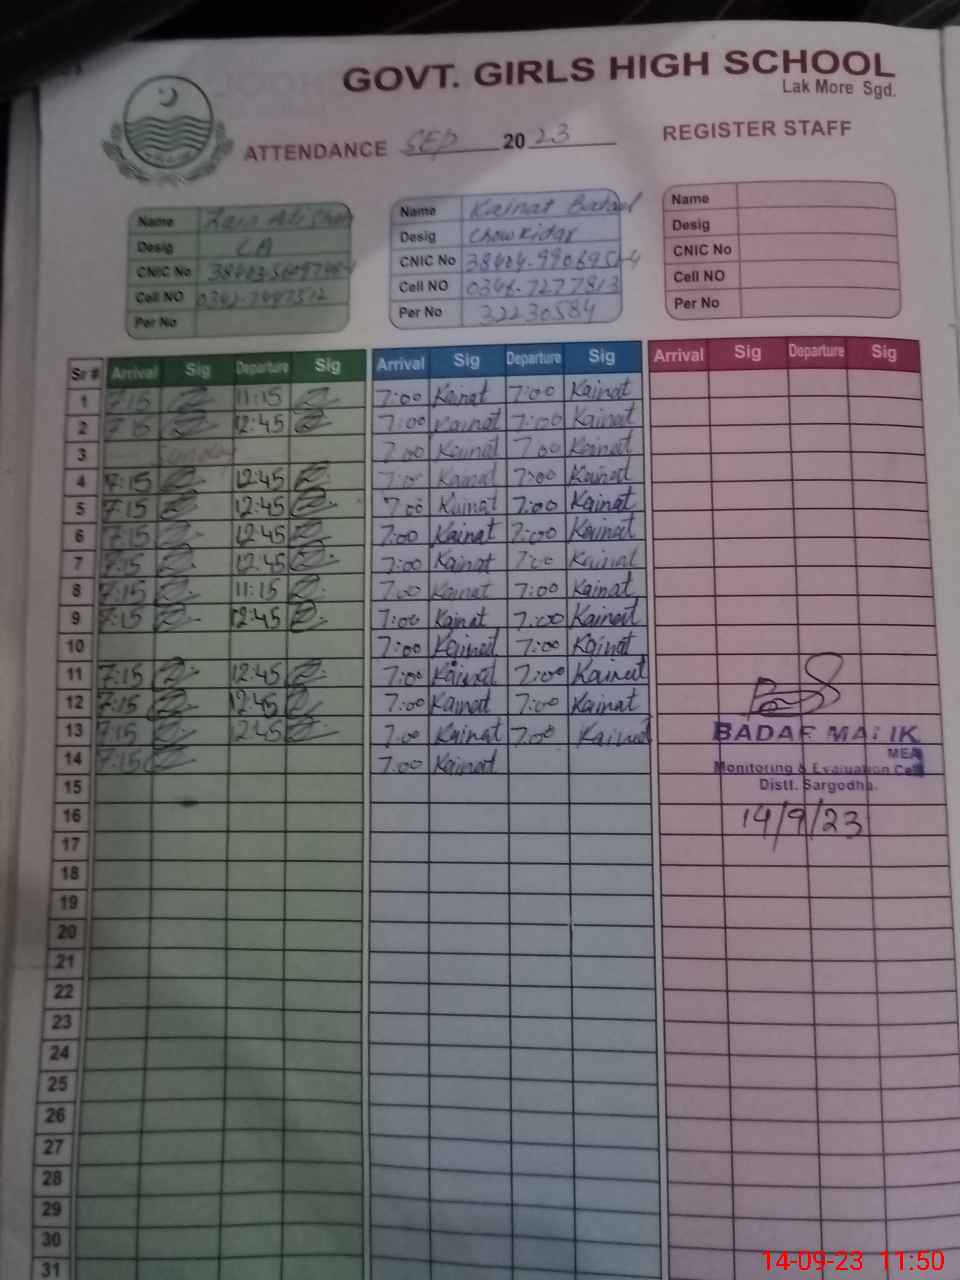 GOVT. GIRLS HIGH SCHOOL
Lak More Sgd.
ATTENDANCE SEP 2023 REGISTER STAFF
Name Kainat Batool Name
Desig LA Desig Chowkidar Desig
CNIC No CNIC No CNIC No
Cell NO Cell NO 0346-7277813 Cell NO
Per No Per No 32230584 Per No
Sr # Arrival Sig Departure Sig Arrival Sig Departure Sig Arrival Sig Departure Sig
1 7:15 11:15 7:00 Kainat 7:00 Kainat
2 7:15 12:45 7:00 Kainat 7:00 Kainat
3 Sunday 7:00 Kainat 7:00 Kainat
4 7:15 12:45 7:00 Kainat 7:00 Kainat
5 7:15 12:45 7:00 Kainat 7:00 Kainat
6 7:15 12:45 7:00 Kainat 7:00 Kainat
7 7:15 12:45 7:00 Kainat 7:00 Kainat
8 7:15 11:15 7:00 Kainat 7:00 Kainat
9 7:15 12:45 7:00 Kainat 7:00 Kainat
10 7:00 Kainat 7:00 Kainat
11 7:15 12:45 7:00 Kainat 7:00 Kainat
12 7:15 12:45 7:00 Kainat 7:00 Kainat
13 7:15 12:45 7:00 Kainat 7:00 Kainat
14 7:15 7:00 Kainat
BADAR MALIK
MEA
Monitoring & Evaluation Cell
Distt. Sargodha.
14/9/23
15
16
17
18
19
20
21
22
23
24
25
26
27
28
29
30
31
14-09-23 11:50